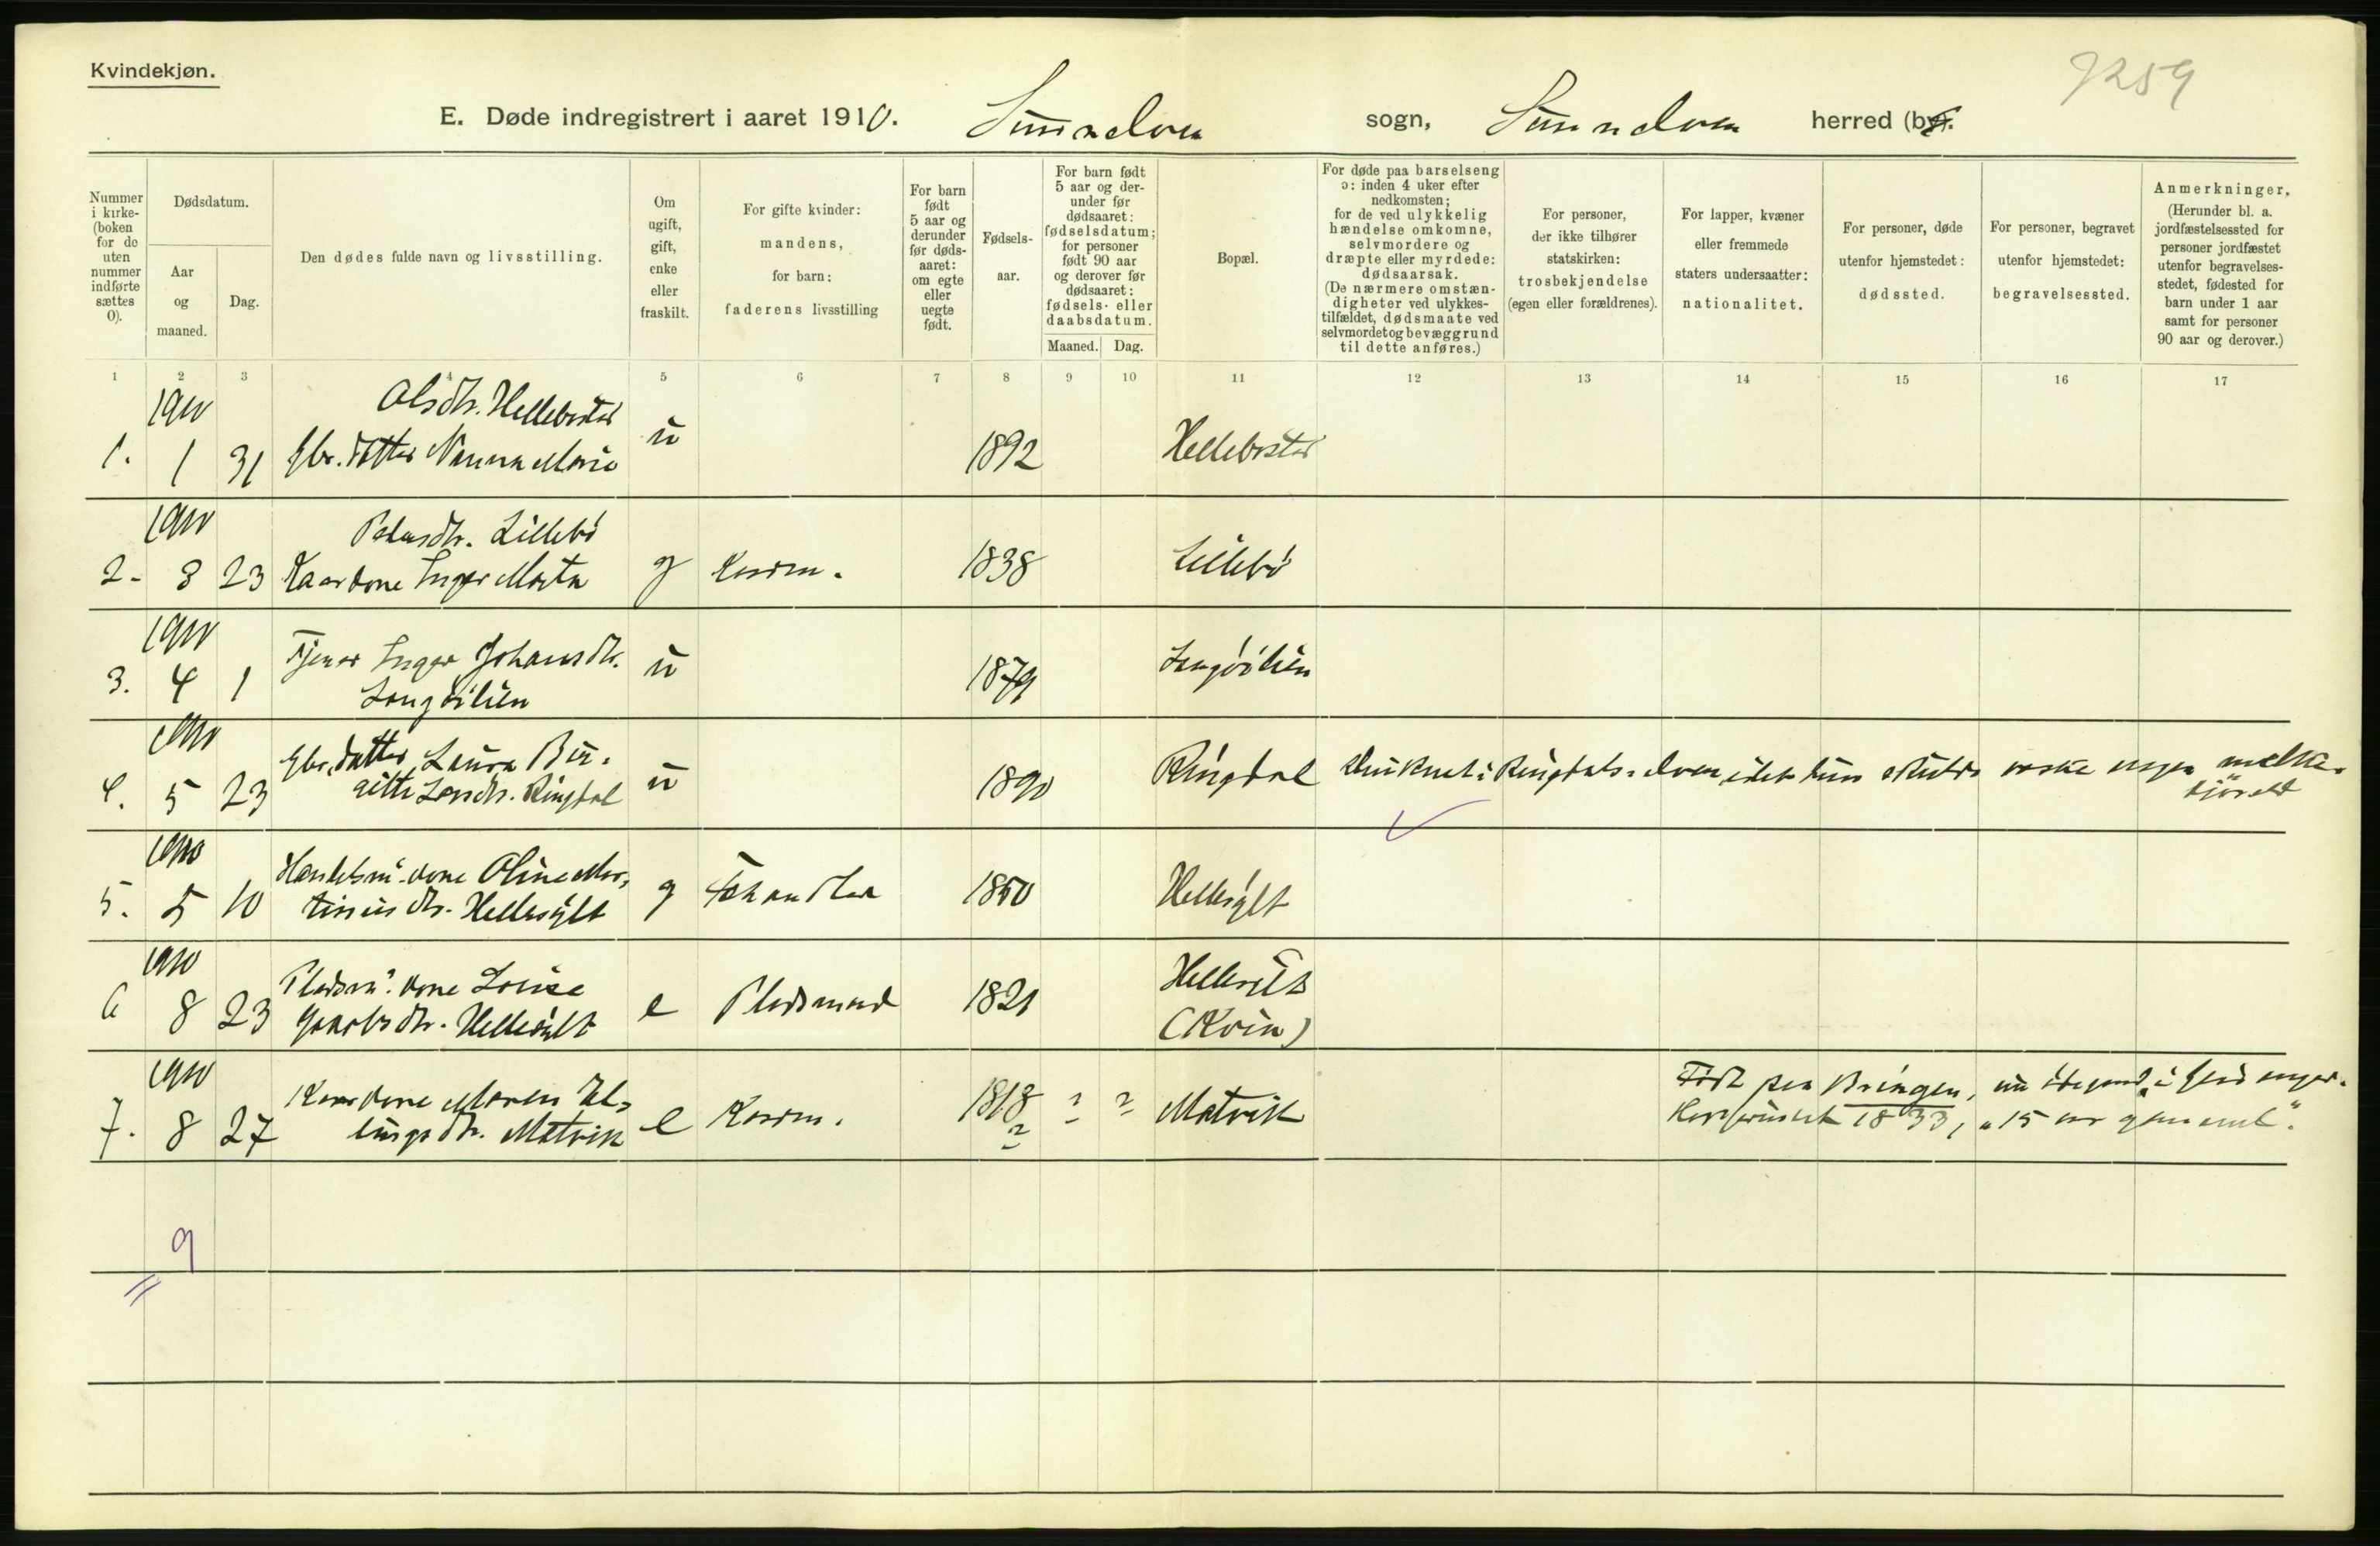 Kvindekjøn.
7259
E. Døde indregistrert i aaret 1910. Sunnelven sogn, Sunnelven herred (by).
Nummer i kirke- (boken for de uten nummer indførte sættes 0).
Dødsdatum.
Aar og maaned.
Dag.
Den dødes fulde navn og livsstilling.
Om ugift, gift, enke eller fraskilt.
For gifte kvinder: mandens, for barn: faderens livsstilling
For barn født 5 aar og derunder før døds- aaret: om egte eller uegte født.
Fødsels- aar.
For barn født 5 aar og der- under før dødsaaret: fødselsdatum; for personer født 90 aar og derover før dødsaaret: fødsels- eller daabsdatum.
Maaned. Dag.
Bopæl.
For døde paa barselseng ɔ: inden 4 uker efter nedkomsten; for de ved ulykkelig hændelse omkomne, selvmordere og dræpte eller myrdede: dødsaarsak. (De nærmere omstæn- digheter ved ulykkes- tilfældet, dødsmaate ved selvmordet og bevæggrund til dette anføres.)
For personer, der ikke tilhører statskirken: trosbekjendelse (egen eller forældrenes).
For lapper, kvæner eller fremmede staters undersaatter: nationalitet.
For personer, døde utenfor hjemstedet: dødssted.
For personer, begravet utenfor hjemstedet: begravelsessted.
Anmerkninger, (Herunder bl. a. jordfæstelsessted for personer jordfæstet utenfor begravelses- stedet, fødested for barn under 1 aar samt for personer 90 aar og derover.)
1 2 3 4 5 6 7 8 9 10 11 12 13 14 15 16 17
1910 Olsdtr. Hellebostad
1. 1 31 Gbr. datter Nanna Marie u 1892 Hellebostad
1910 Petersdtr. Lillebö
2. 3 23 Kaarkone Inger Marta g Kaarm. 1838 Lillebö
1910 Tjener Inger Johansdtr.
3. 4 1 Langöilien u 1879 Langöilien
1910 Gbr. datter Laura Bir-
4. 5 23 gitte Larsdtr. Ringdal u 1890 Ringdal druknet i Ringdals-elven idet hun skulde vaske nogen melke-
kjöreld
1910 Handelsm. kone Oline Mar-
5. 5 10 tinusdtr. Hellesylt g Fhandler 1850 Hellesylt
1910 Pladsm. kone Louise
6 8 23 Jakobsdtr. Hellesylt e Pladsmand 1821 Hellesylt
(Kvien)
1910 Kaarkone Maren El-
7. 8 27 lingsdtr. Matvik e Kaarm. 1818 ? ? ? Matvik
Född paa Bringen, nu ödegaard, i Geiranger.
Konfirmeret 1833, "15 aar gammel".
9